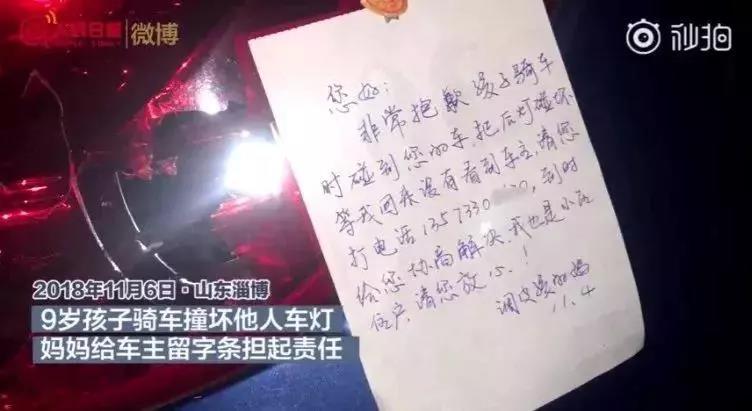 微博
秒拍
您好：
非常抱歉孩子骑车
时碰到您的车,把后灯碰坏
等我回来没有看到车主,请您
打电话1357330 到时
给您协商解决.我也是小区
住户,请您放心！
调皮孩的妈
11.4
2018年11月6日·山东淄博
9岁孩子骑车撞坏他人车灯
妈妈给车主留字条担起责任